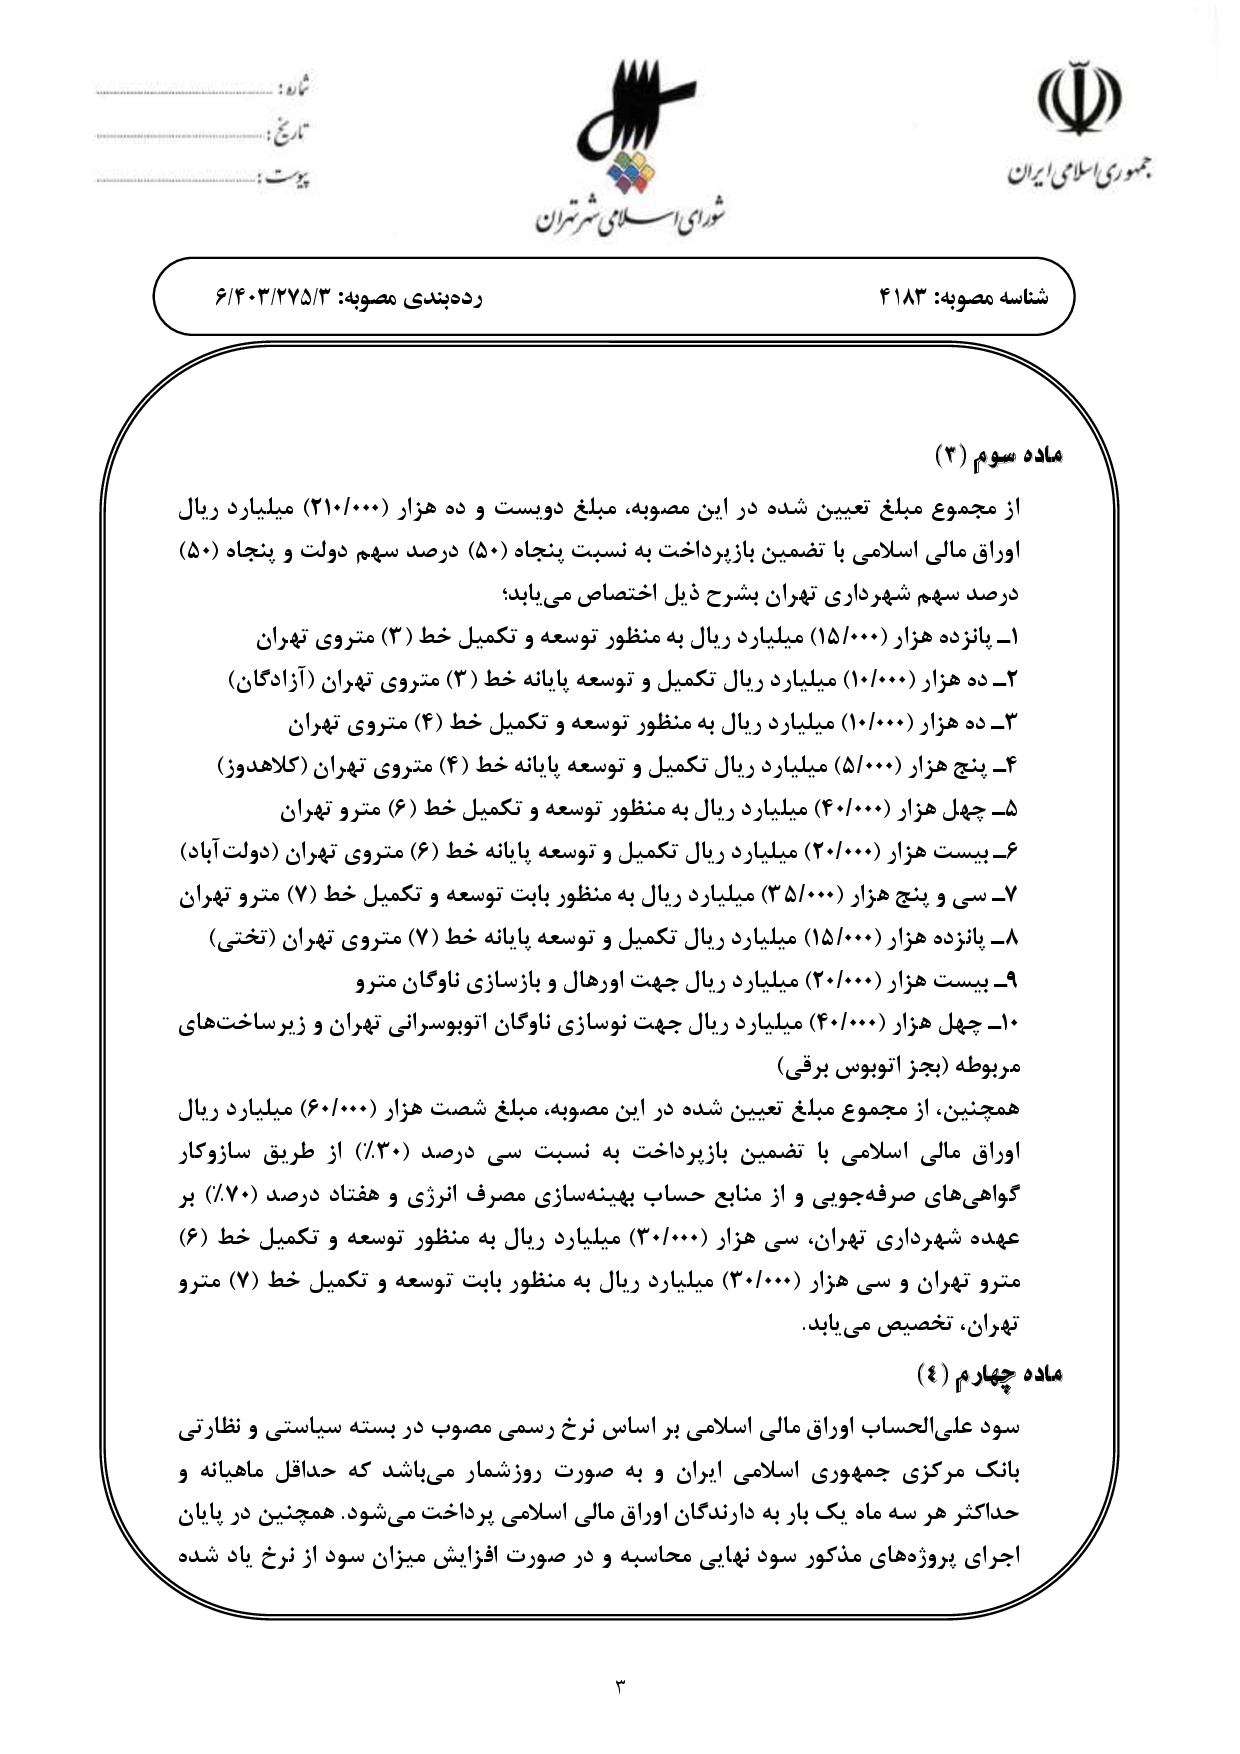 جمهوری اسلامی ایران
شورای اسلامی شهر تهران
شماره:
تاریخ:
پیوست:
شناسه مصوبه: ۴۱۸۳
رده‌بندی مصوبه: ۶/۴۰۳/۲۷۵/۳
ماده سوم (۳)
از مجموع مبلغ تعیین شده در این مصوبه، مبلغ دویست و ده هزار (۲۱۰/۰۰۰) میلیارد ریال
اوراق مالی اسلامی با تضمین بازپرداخت به نسبت پنجاه (۵۰) درصد سهم دولت و پنجاه (۵۰)
درصد سهم شهرداری تهران بشرح ذیل اختصاص می‌یابد؛
۱ـ پانزده هزار (۱۵/۰۰۰) میلیارد ریال به منظور توسعه و تکمیل خط (۳) متروی تهران
۲ـ ده هزار (۱۰/۰۰۰) میلیارد ریال تکمیل و توسعه پایانه خط (۳) متروی تهران (آزادگان)
۳ـ ده هزار (۱۰/۰۰۰) میلیارد ریال به منظور توسعه و تکمیل خط (۴) متروی تهران
۴ـ پنج هزار (۵/۰۰۰) میلیارد ریال تکمیل و توسعه پایانه خط (۴) متروی تهران (کلاهدوز)
۵ـ چهل هزار (۴۰/۰۰۰) میلیارد ریال به منظور توسعه و تکمیل خط (۶) مترو تهران
۶ـ بیست هزار (۲۰/۰۰۰) میلیارد ریال تکمیل و توسعه پایانه خط (۶) متروی تهران (دولت‌آباد)
۷ـ سی و پنج هزار (۳۵/۰۰۰) میلیارد ریال به منظور بابت توسعه و تکمیل خط (۷) مترو تهران
۸ـ پانزده هزار (۱۵/۰۰۰) میلیارد ریال تکمیل و توسعه پایانه خط (۷) متروی تهران (تختی)
۹ـ بیست هزار (۲۰/۰۰۰) میلیارد ریال جهت اورهال و بازسازی ناوگان مترو
۱۰ـ چهل هزار (۴۰/۰۰۰) میلیارد ریال جهت نوسازی ناوگان اتوبوسرانی تهران و زیرساخت‌های
مربوطه (بجز اتوبوس برقی)
همچنین، از مجموع مبلغ تعیین شده در این مصوبه، مبلغ شصت هزار (۶۰/۰۰۰) میلیارد ریال
اوراق مالی اسلامی با تضمین بازپرداخت به نسبت سی درصد (۳۰٪) از طریق سازوکار
گواهی‌های صرفه‌جویی و از منابع حساب بهینه‌سازی مصرف انرژی و هفتاد درصد (۷۰٪) بر
عهده شهرداری تهران، سی هزار (۳۰/۰۰۰) میلیارد ریال به منظور توسعه و تکمیل خط (۶)
مترو تهران و سی هزار (۳۰/۰۰۰) میلیارد ریال به منظور بابت توسعه و تکمیل خط (۷) مترو
تهران، تخصیص می‌یابد.
ماده چهارم (٤)
سود علی‌الحساب اوراق مالی اسلامی بر اساس نرخ رسمی مصوب در بسته سیاستی و نظارتی
بانک مرکزی جمهوری اسلامی ایران و به صورت روزشمار می‌باشد که حداقل ماهیانه و
حداکثر هر سه ماه یک بار به دارندگان اوراق مالی اسلامی پرداخت می‌شود. همچنین در پایان
اجرای پروژه‌های مذکور سود نهایی محاسبه و در صورت افزایش میزان سود از نرخ یاد شده
۳